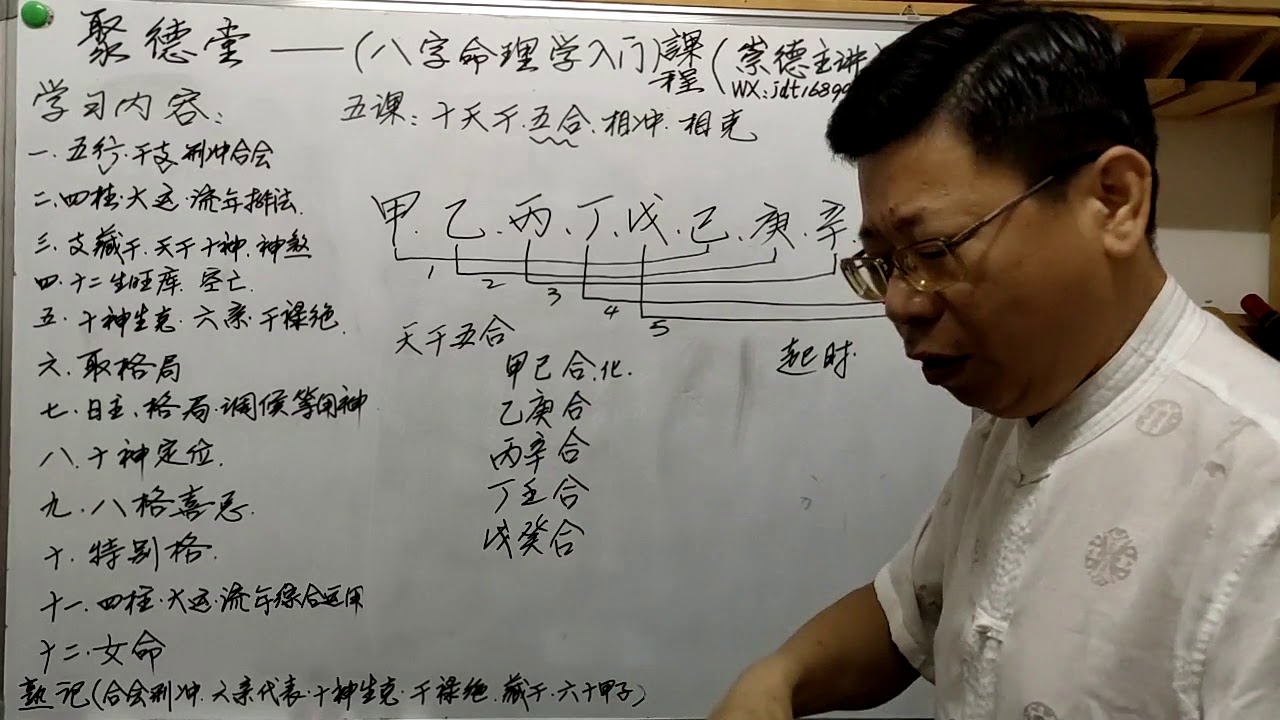 聚德堂——(八字命理学入门)課程(崇德主讲
WX:jdt1689
学习内容:
五课:十天干五合.相冲.相克
一.五行.干支刑冲合会
二.四柱.大运.流年排法.
三.支藏干.天干十神.神煞
四.十二生旺库.空亡.
五.十神生克.六亲.干禄绝.
六.取格局
七.日主.格局.调候等用神
八.十神定位.
九.八格喜忌.
十.特别格.
十一.四柱.大运.流年综合运用
十二.女命
熟记(合会刑冲.六亲代表.十神生克.干禄绝.藏干.六十甲子)
甲.乙.丙.丁.戊.己.庚.辛.
1 2 3 4 5
天干五合
起时.
甲己合.化.
乙庚合
丙辛合
丁壬合
戊癸合